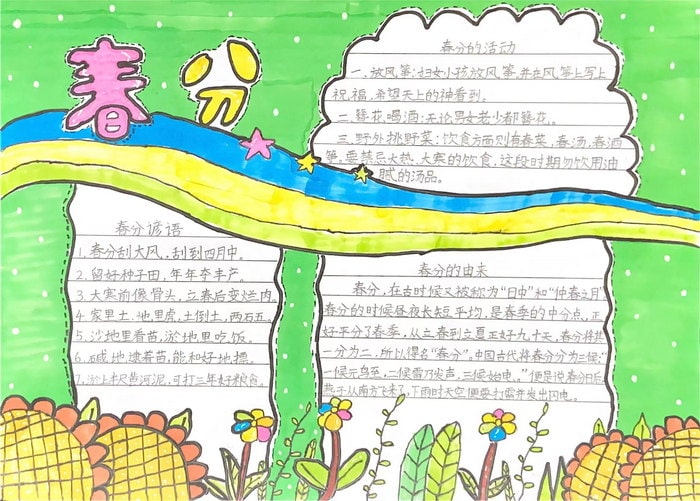 春分
春分的活动
一、放风筝:妇女小孩放风筝,并在风筝上写上
祝福,希望天上的神看到。
二、簪花喝酒:无论男女老少都簪花。
三、野外挑野菜:饮食方面则有春菜、春汤、春酒
等,要禁忌大热、大寒的饮食,这段时期勿饮用油
腻的汤品。
春分谚语
1.春分刮大风,刮到四月中。
2.留好种子田,年年夺丰产。
3.大寒前像骨头,立春后变烂肉。
4.家里土,地里虎,土倒土,两石五。
5.沙地里看苗,淤地里吃饭。
6.碱地逮着苗,能和好地摽。
7.沙上半尺黄河泥,可打三年好粮食。
春分的由来
春分,在古时候又被称为“日中”和“仲春之月”
春分的时候昼夜长短平均,是春季的中分点,正
好平分了春季,从立春到立夏正好九十天,春分将其
一分为二,所以得名“春分”。中国古代将春分分为三候:“
一候元鸟至,二候雷乃发声,三候始电。”便是说春分日后,
燕子从南方飞来了,下雨时天空便要打雷并发出闪电。